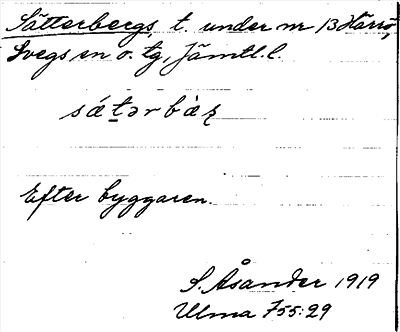 Sätterbergs, t. under nr 13 Härrö,
Svegs sn o. tg, Jämtl. l.
sǽtərbæ̀ʀ
Efter byggaren.
S. Åsander 1919
Ulma 755:29